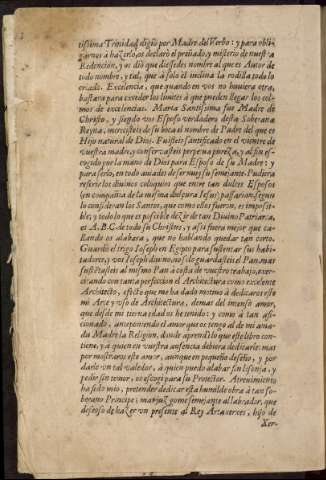 tissima Trinidad eligiò por Madre del Verbo: y para obli-
garnos à hazerlo, os declarò el preñado, y misterio de nuestra
Redencion, y os diò que diessedes nombre al que es Autor de
todo nombre, y tal, que à solo èl inclina la rodilla todo lo
criado. Excelencia, que quando en vos no huviera otra,
bastara para exceder los limites à que pueden llegar los col-
mos de excelencias. Maria Santissima fue Madre de
Christo, y siendo vos Esposo verdadero desta Soberana
Reyna, merecisteis de su boca el nombre de Padre del que es
Hijo natural de Dios. Fuisteis santificado en el vientre de
vuestra madre, y conservasteis perpetua pureza, y assi fuis es-
cogido por la mano de Dios para Esposo de su Madre: y
para serlo, en todo aviades de ser muy su semejante. Pudiera
referir los divinos coloquios que entre tan dulces Esposos
(en compañia de la misma dulçura Iesus) passaron, segun
lo consideran los Santos, que como ellos fueron, es imposi-
ble; y todo lo que es possible dezir de tan Divino Patriarca,
es A.B.C. de todo su Christus, y assi fuera mejor que ca-
llando os alabara, que no hablando quedar tan corto.
Guardò el trigo Ioseph en Egypto para sustentar sus habi-
tadores, y vos Ioseph divino, no solo guardasteis el Pan, mas
sustentasteis al mismo Pan à costa de vuestro trabajo, exer-
citando con tanta perfeccion el Architectura como excelente
Architecto, efecto que me ha dado motivo à dedicaros este
mi Arte y uso de Architectura, demas del intenso amor,
que desde mi tierna edad os he tenido: y como à tan afi-
cionado, anteponiendo el amor que os tengo al de mi ama-
da Madre la Religion, donde aprendi lo que este libro con-
tiene, y à quien en vuestra ausencia debiera dedicarle: mas
por mostraros este amor, aunque en pequeño desseño, y por
darle un tal valedor, à quien puedo alabar sin lisonja, y
pedir sin temor, os escogi para su Protector. Atrevimiento
ha sido mio, pretender dedicar esta humilde obra à tan so-
berano Principe; mas juzgome semejante al labrador, que
desseoso de hazer un presente al Rey Artaxerxes, hijo de
Xer-